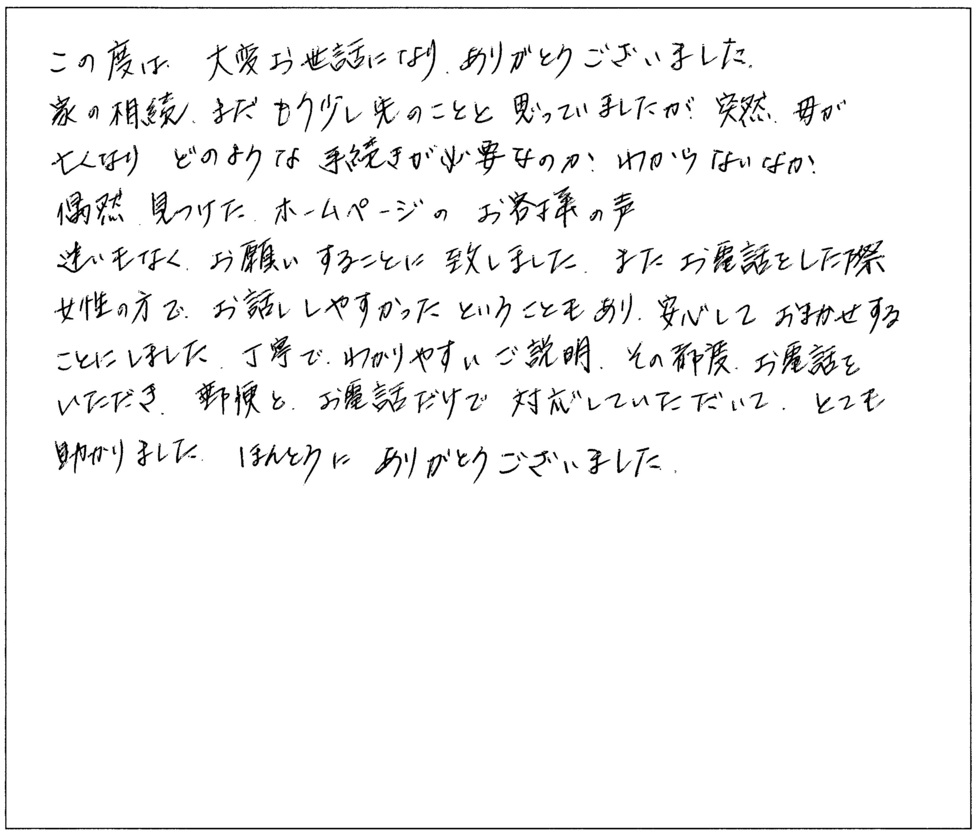 この度は、大変お世話になり、ありがとうございました。
家の相続、まだもう少し先のことと思っていましたが、突然、母が
亡くなり どのような手続きが必要なのか？わからないなか？
偶然、見つけた、ホームページの お客様の声
迷いもなく、お願いすることに致しました。またお電話をした際
女性の方で、お話ししやすかったということもあり、安心しておまかせする
ことにしました。丁寧で、わかりやすいご説明、その都度、お電話を
いただき、郵便と、お電話だけで対応していただいて、とても
助かりました。ほんとうに ありがとうございました。